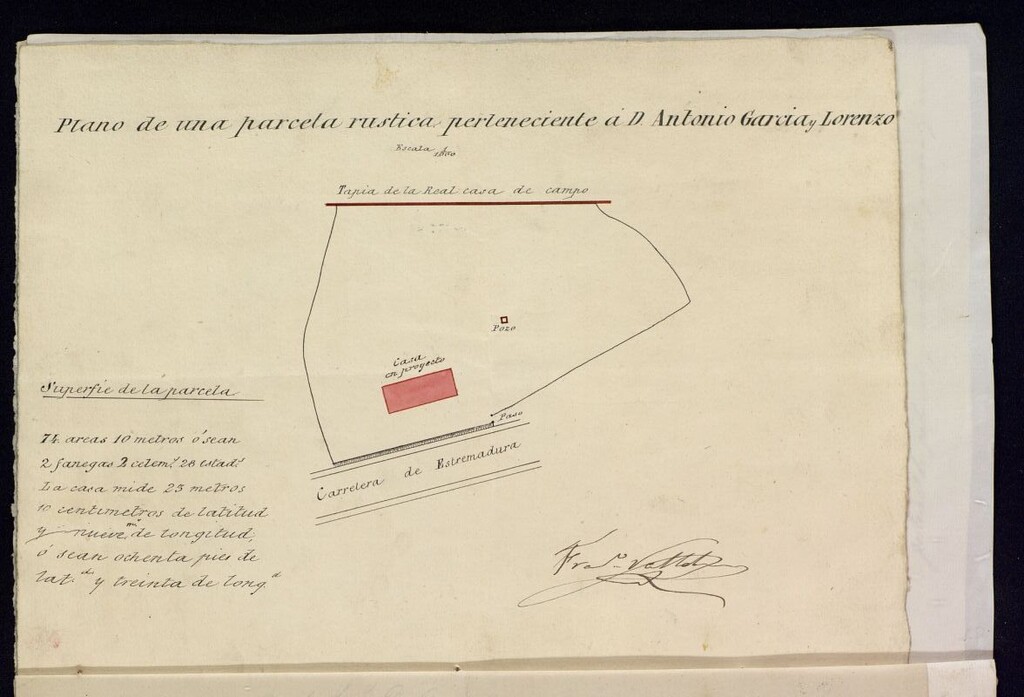 Plano de una parcela rustica perteneciente á D Antonio Garcia y Lorenzo
Escala
Tapia de la Real casa de campo
Pozo
Casa
en proyecto
Paso
Carretera de Estremadura
Superfie de la parcela
74 areas 10 metros ó sean
2 fanegas 2 celem.s 28 estad.s
La casa mide 25 metros
10 centimetros de latitud
y nueve ms de longitud,
ó sean ochenta pies de
lat.d y treinta de long.d
Fran.co